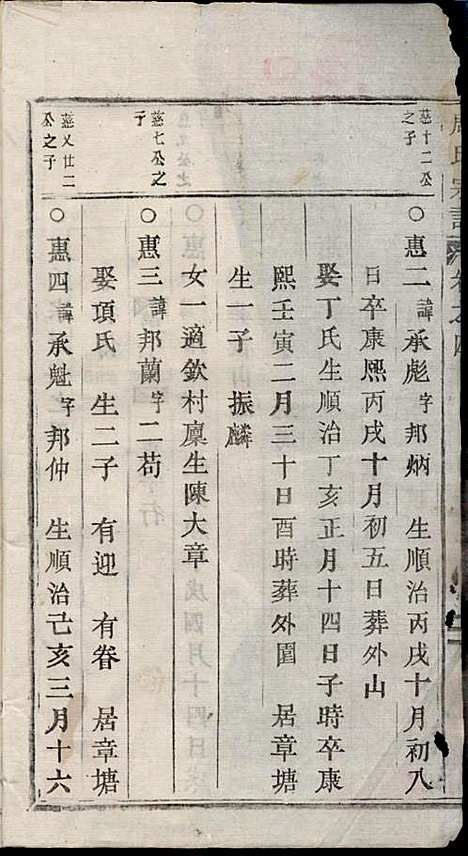 慈十二公
之子
○惠二諱承彪字邦炳　生順治丙戌十月初八
日卒康熙丙戌十月初五日葬外山
娶丁氏生順治丁亥正月十四日子時卒康
熙壬寅二月三十日酉時葬外園　居章塘
生一子　振麟
女一適欽村廩生陳大章
慈七公之
子
○惠三諱邦蘭字二苟
娶項氏　生二子　有迎　有眷　居章塘
慈又廿二
公之子
○惠四諱承魁字邦仲　生順治己亥三月十六